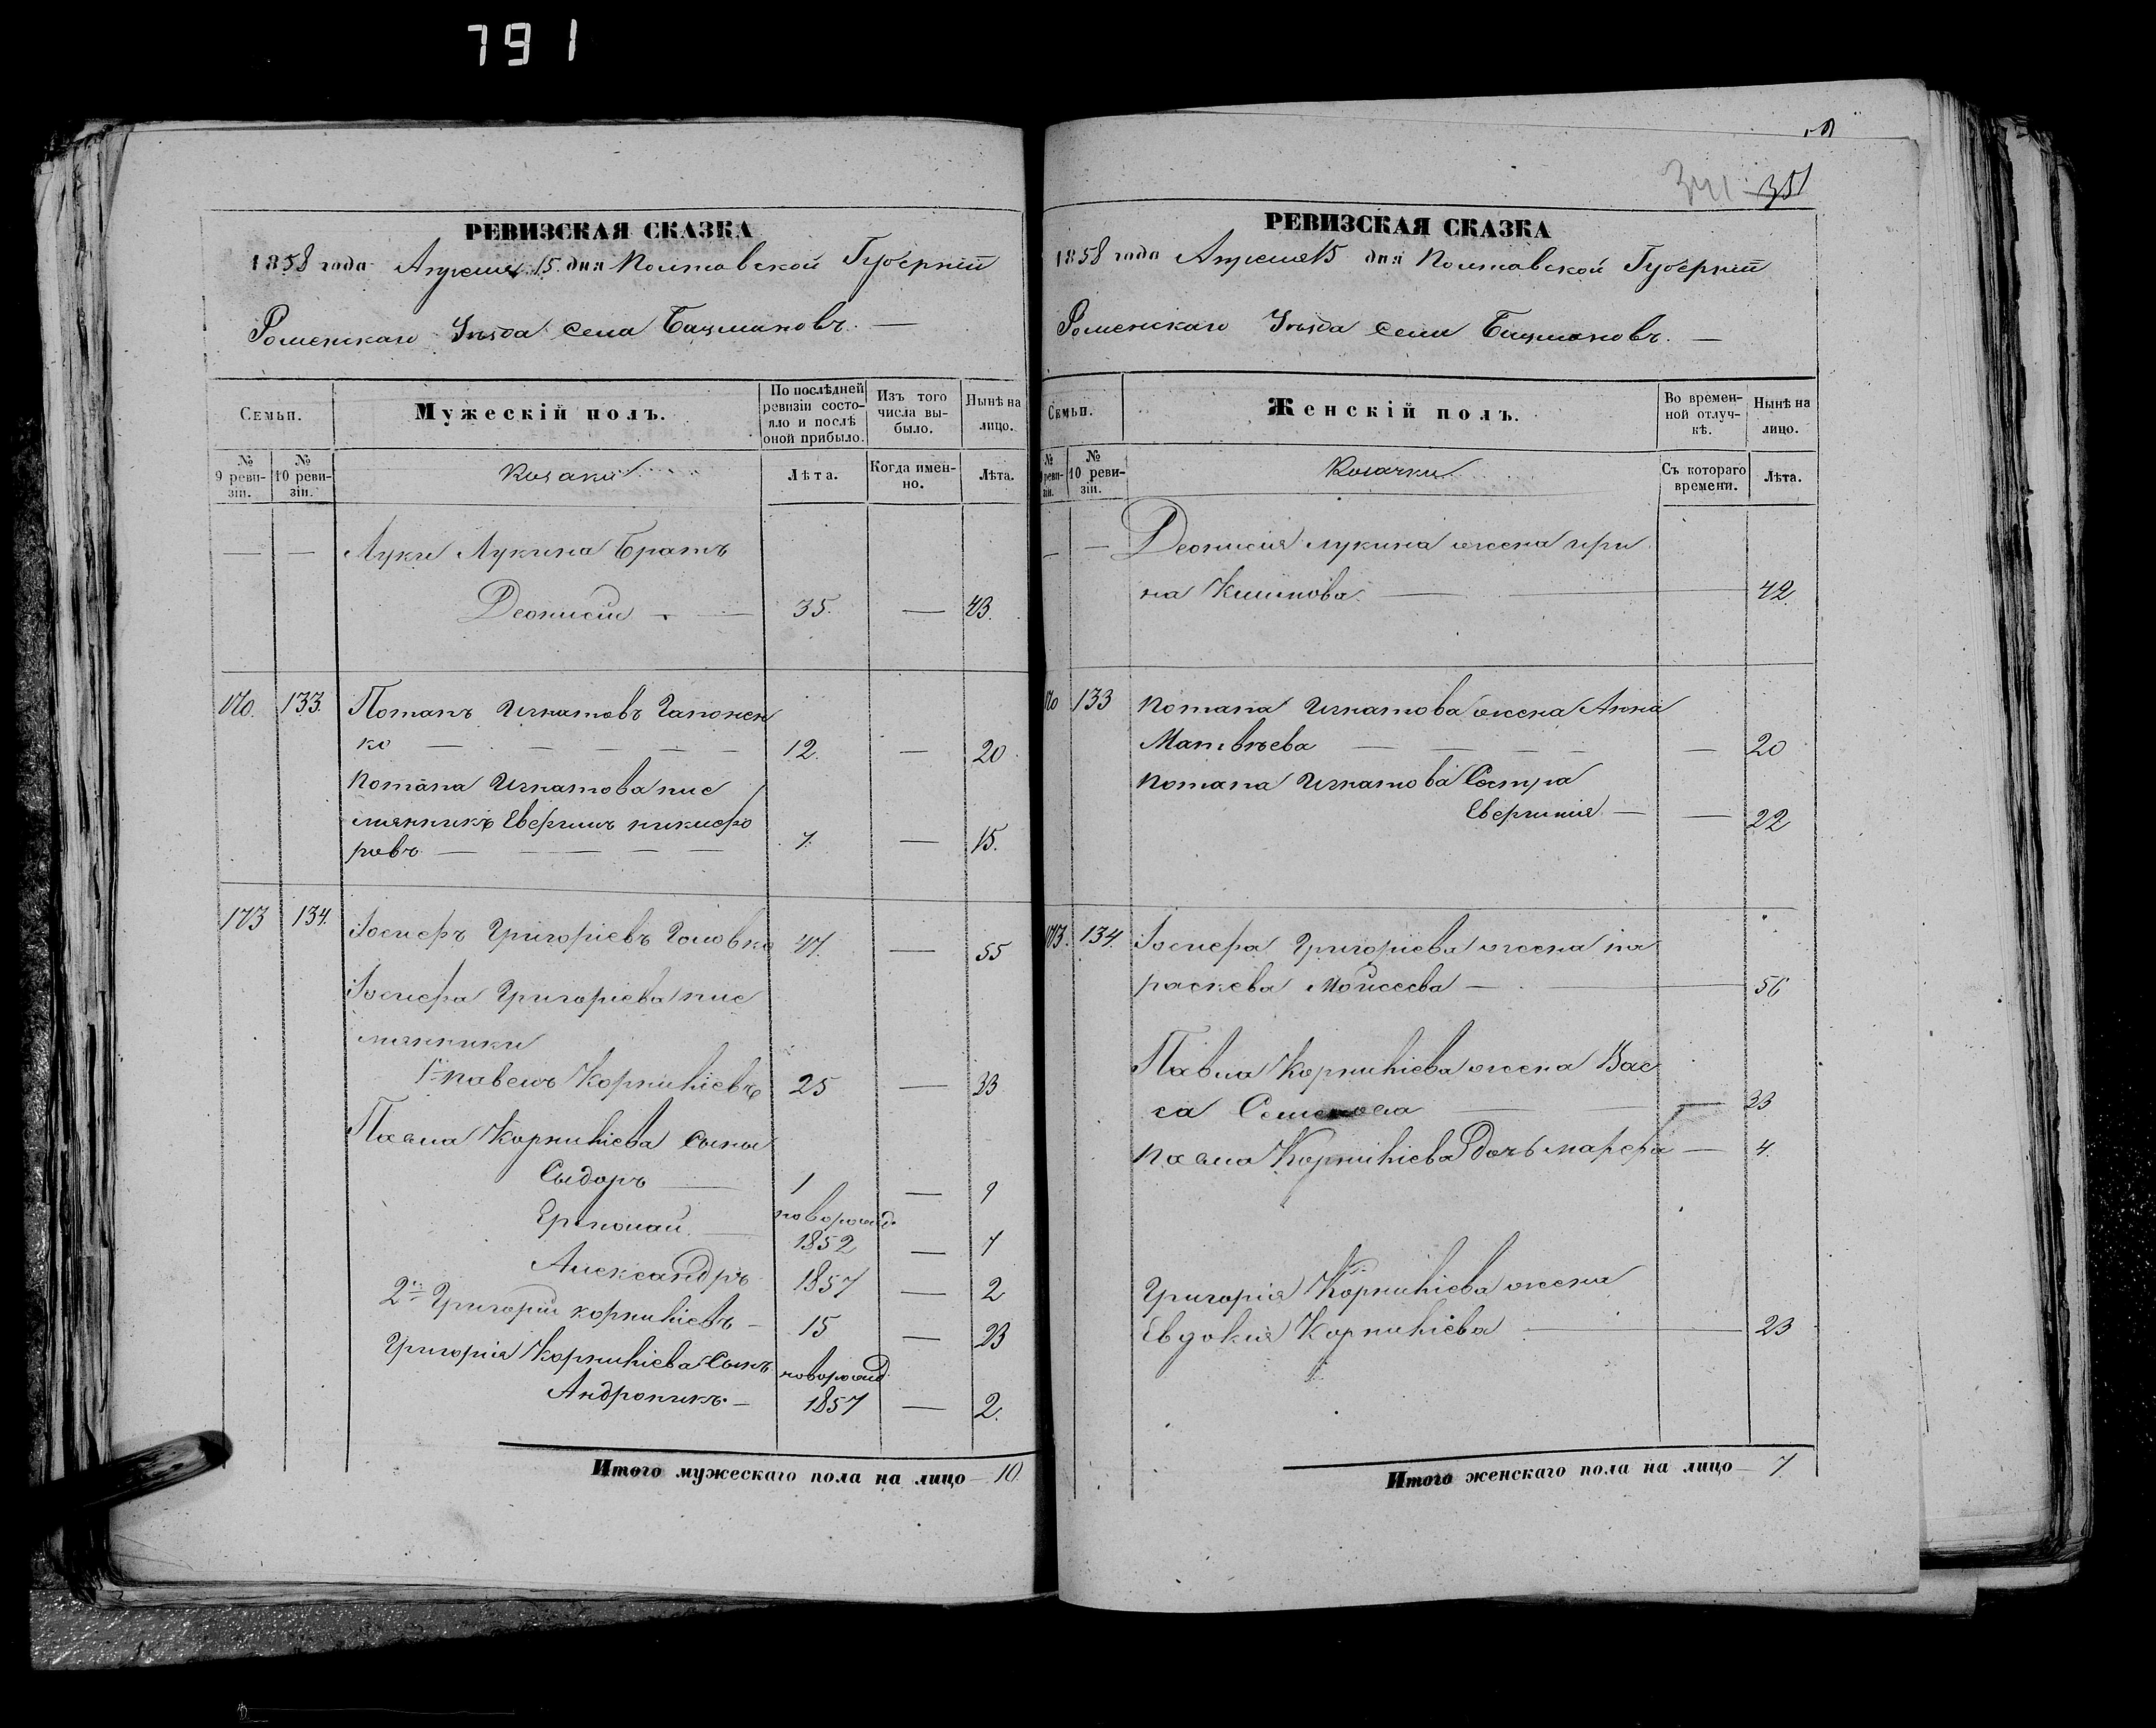 791
341 351
РЕВИЗСКАЯ СКАЗКА
1858 года Апреля 15 дня Полтавской Губерніи
Роменскаго Уѣзда села Бацмановъ. —
Семьи.
Мужескій полъ.
По послѣдней ревизіи состояло и послѣ оной прибыло.
Изъ того числа выбыло.
Нынѣ на лицо.
№ 9 ревизіи.
№ 10 ревизіи.
Козаки
Лѣта.
Когда именно.
Лѣта.
— — Луки Лукина Братъ
Деонисій — 35. — 43.
170. 133. Потапъ Игнатовъ Гапонен
ко — 12. — 20
Потапа Игнатова пле
мянникъ никифо
ровъ — 7. — 15.
173 134. Іосифъ Григоріевъ Головко 47. — 55
Іосифа Григоріева пле
мянники
1й павелъ Корниліевъ 25 — 33
Павла Корниліева сыны
Сыдоръ — 1 — 9
Ермолай — новорожд. 1852 — 7
Александръ 1857 — 2
2й Григорій корниліевъ — 15 — 23
Григорія Корниліева Сынъ новорожд.
Андроникъ — 1857 — 2.
Итого мужескаго пола на лицо 10.
РЕВИЗСКАЯ СКАЗКА
1858 года Апреля 15 дня Полтавской Губерніи
Роменскаго Уѣзда села Бацмановъ. —
Семьи.
Женскій полъ.
Во временной отлучкѣ.
Нынѣ на лицо.
№ 9 ревизіи.
№ 10 ревизіи.
Козачки
Съ котораго времени.
Лѣта.
— — Деонисія лукина жена ири
на Климова — 42.
170 133 Потапа Игнатова жена Анна
Матвѣева — 20
Потапа Игнатова Сестра
— 22
173. 134. Іосифа Григоріева жена па
раскева Мойсеева — 56
Павла Корниліева жена Вас
са Семенова — 33
Павла Корниліева дочь марфа — 4.
Григорія Корниліева жена
Евдокия Корниліева — 23
Итого женскаго пола на лицо 7.